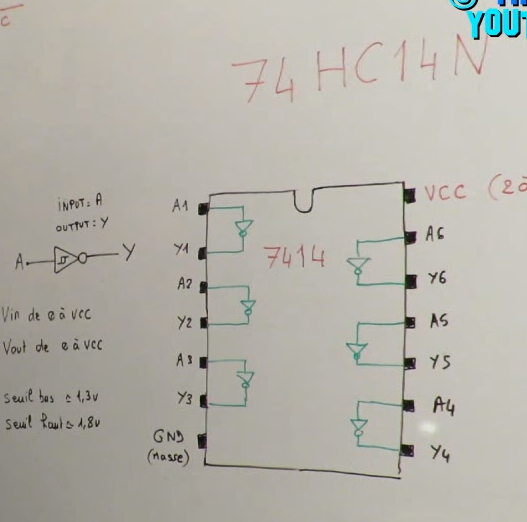 74HC14N
INPUT: A
OUTPUT: Y
A
Y
Vin de 0 à vcc
Vout de 0 à vcc
seuil bas ≃ 1,3v
seuil haut ≃ 1,8v
A1
Y1
A2
Y2
A3
Y3
GND
(masse)
7414
VCC (2à
A6
Y6
A5
Y5
A4
Y4